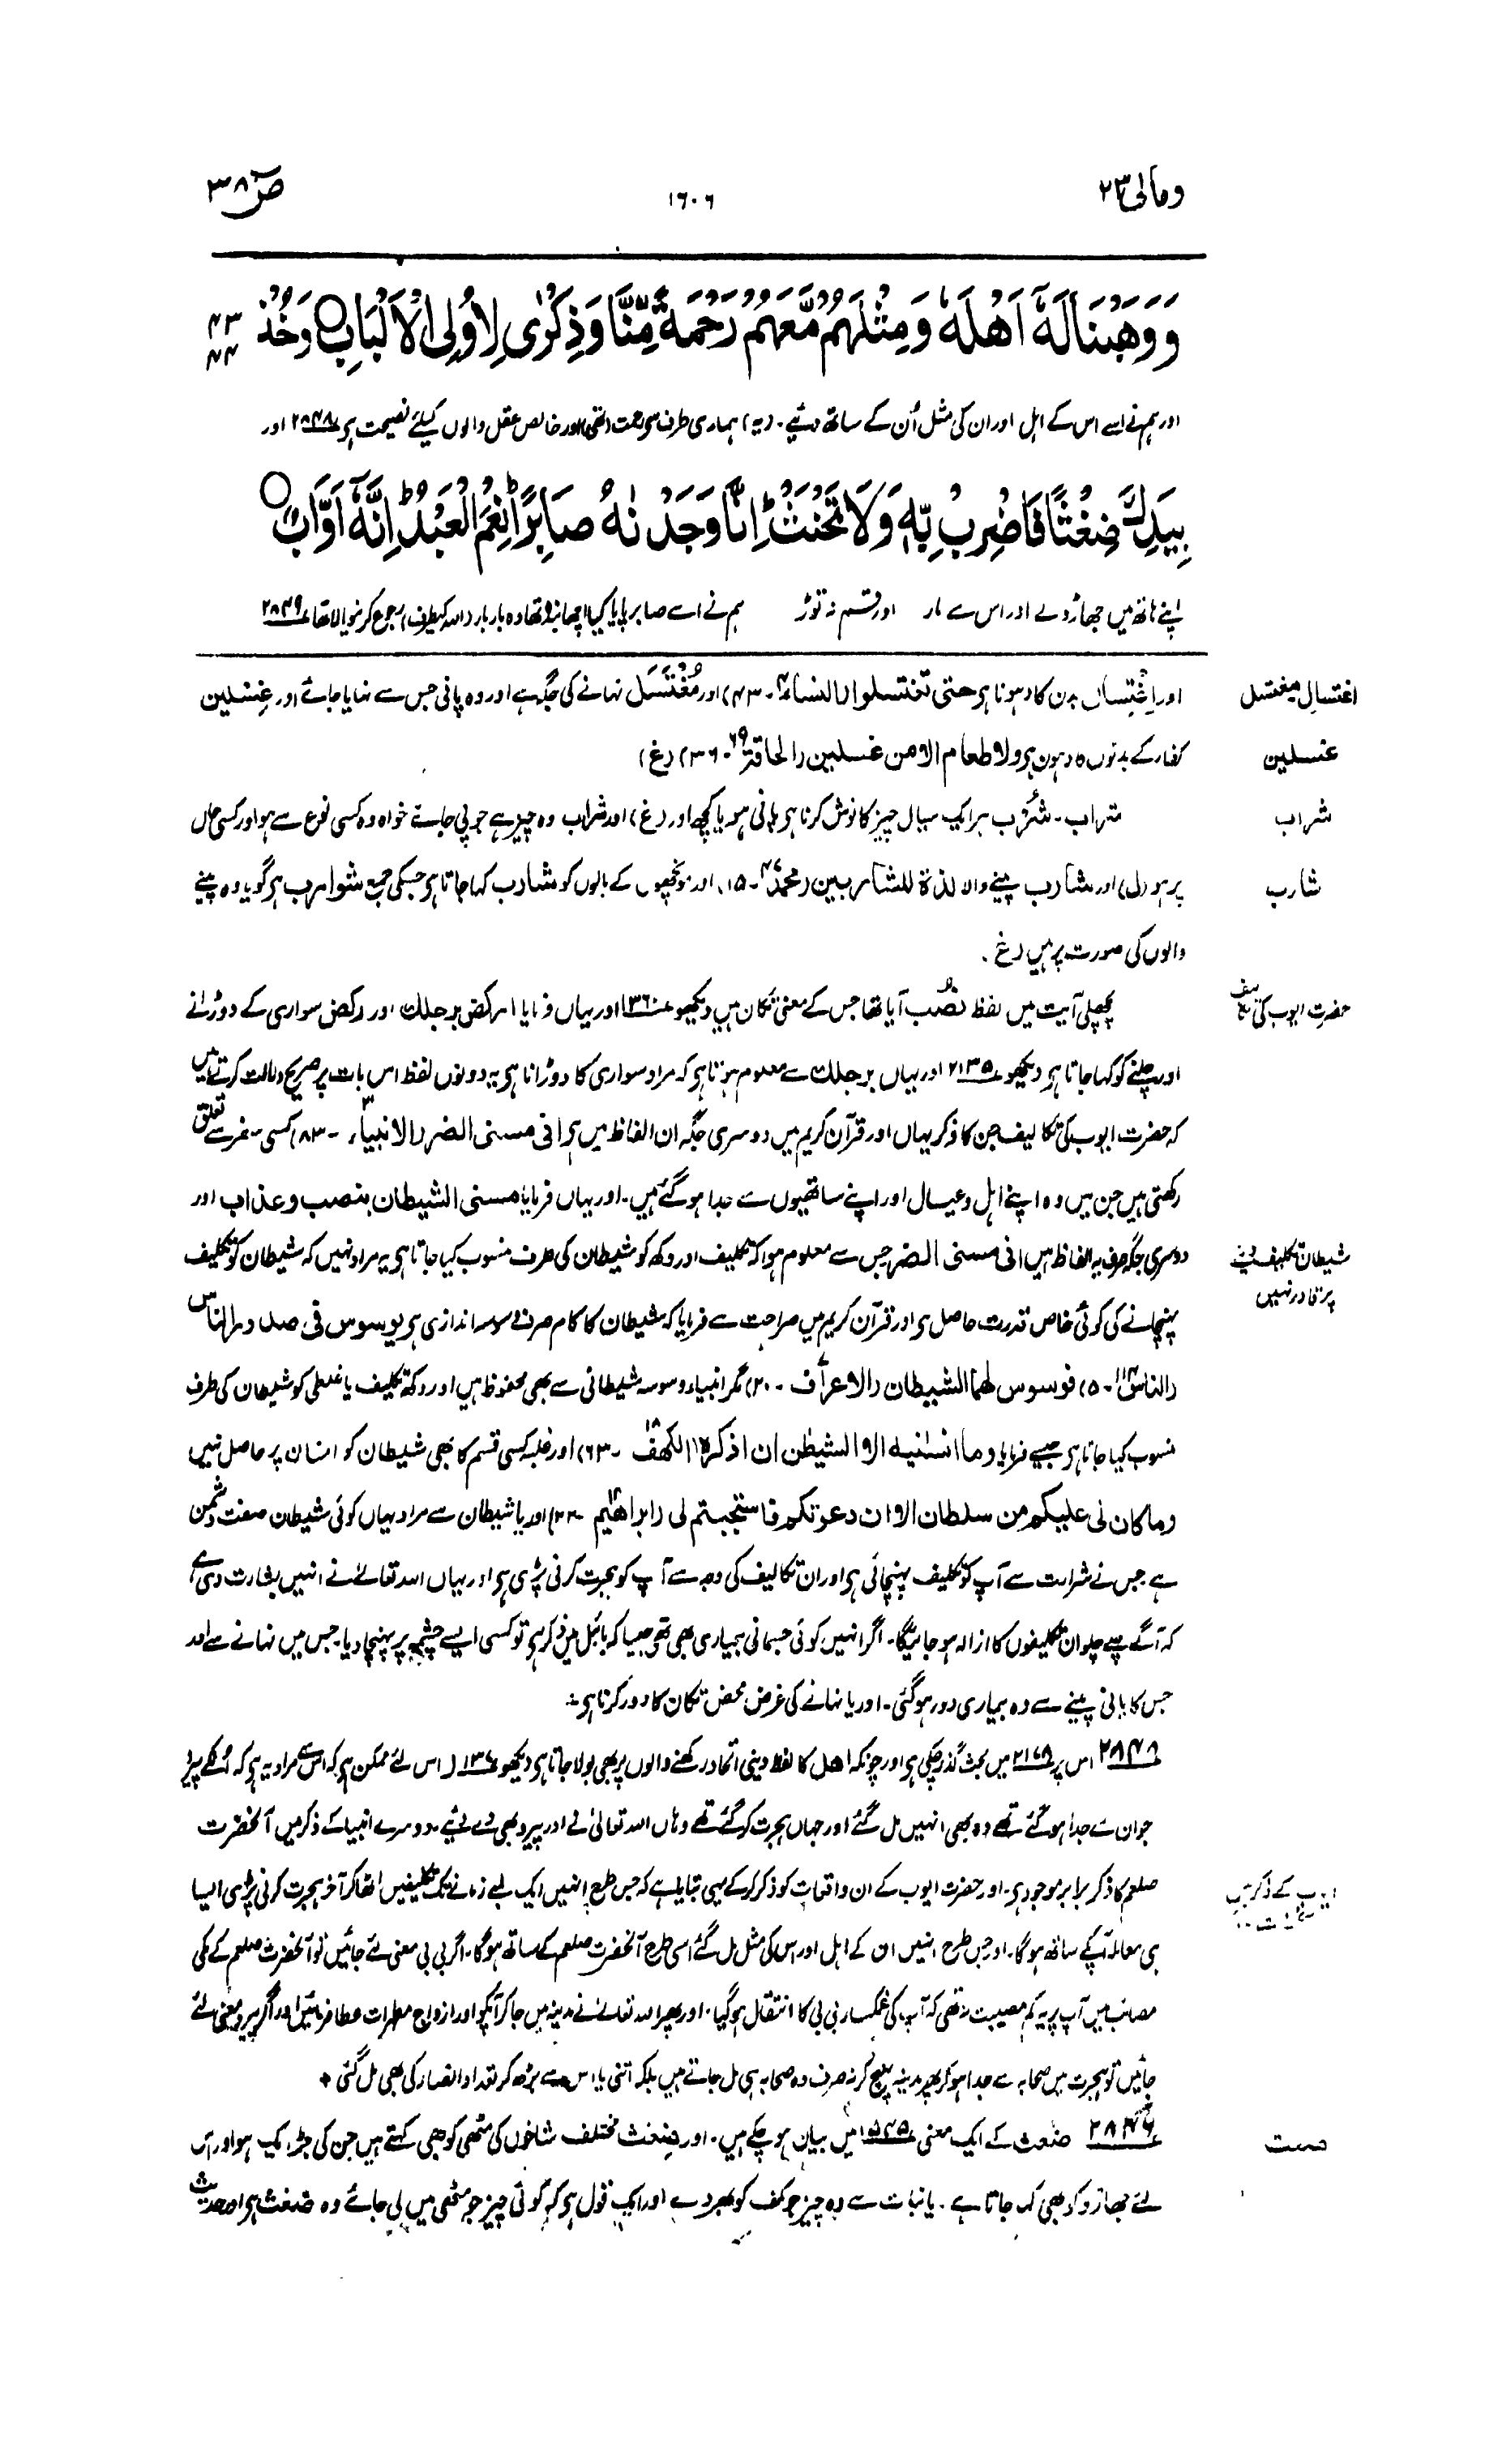 ومالی ٢٣
١٦٠٦
صٓ ٣٨
وَوَهَبْنَا لَهٗٓ اَهْلَهٗ وَمِثْلَهُمْ مَّعَهُمْ رَحْمَةً مِّنَّا وَذِكْرٰى لِاُولِى الْاَلْبَابِ ○ وَخُذْ
٤٣
٤٤
اور ہم نے اسے اس کے اہل اور ان کی مثل اُن کے ساتھ دئیے۔ (یہ) ہماری طرف سے رحمت (تھی) اور خالص عقل والوں کیلئے نصیحت ہے ٢٨٤٨ اور
بِيَدِكَ ضِغْثًا فَاضْرِبْ بِّهٖ وَلَا تَحْنَثْ ؕ اِنَّا وَجَدْنٰهُ صَابِرًا ؕ نِعْمَ الْعَبْدُ ؕ اِنَّهٗٓ اَوَّابٌ ○
اپنے ہاتھ میں جھاڑو لے اور اس سے مار اور قسم نہ توڑ ہم نے اسے صابر پایا کیا اچھا بندہ تھا وہ بار بار (اللہ کیطرف) رجوع کرنیوالا تھا ٢٨٤٩
اغتسال مغتسل
اور اِغْتِسال بدن کا دہونا ہے حتی تغتسلوا (النساء ٤۔ ٤٣) اور مُغْتَسَل نہانے کی جگہ ہے اور وہ پانی جس سے نہایا جائے اور غِسْلین
غسلین
کفار کے بدنوں کا دہون ہے ولا طعام الا من غسلین (الحاقۃ ٦٩۔ ٣٦) (غ)
شراب
شراب۔ شُرْب ہر ایک سیال چیز کا نوش کرنا ہے پانی ہو یا کچھ اور (غ) اور شراب وہ چیز ہے جو پی جائے خواہ وہ کسی نوع سے ہو اور کسی حال
شارب
پر ہو (ل) اور شارب پینے والا لذۃ للشاربین (محمدؐ ٤٧۔ ١٥)، اور مونچھوں کے بالوں کو شارب کہا جاتا ہے جسکی جمع شوارب ہے گویا وہ پینے
والوں کی صورت پر ہیں (غ)۔
حضرت ایوب کی تکالیف
پچھلی آیت میں لفظ نُصْب آیا تھا جس کے معنی تکان ہیں دیکھو ١٣٦٠ اور یہاں فرمایا ارکض برجلک اور رکض سواری کے دوڑانے
اور چلنے کو کہا جاتا ہے دیکھو ٢١٣٥ اور یہاں برجلک سے معلوم ہوتا ہے کہ مراد سواری کا دوڑانا ہے یہ دونوں لفظ اس بات پر صریح دلالت کرتے ہیں
کہ حضرت ایوب کی تکالیف جن کا ذکر یہاں اور قرآن کریم میں دوسری جگہ ان الفاظ میں ہے انی مسنی الضر (الانبیاء ۔ ٨٣) کسی سفر سے تعلق
رکھتی ہیں جن میں وہ اپنے اہل و عیال اور اپنے ساتھیوں سے جدا ہو گئے ہیں۔ اور یہاں فرمایا مسنی الشیطان بنصب و عذاب اور
شیطان تکلیف دینے
پر قادر نہیں
دوسری جگہ صرف یہ الفاظ ہیں انی مسنی الضر جس سے معلوم ہوا کہ تکلیف اور دکھ کو شیطان کی طرف منسوب کیا جاتا ہے یہ مراد نہیں کہ شیطان کو تکلیف
پہنچانے کی کوئی خاص قدرت حاصل ہے اور قرآن کریم میں صراحت سے فرمایا کہ شیطان کا کام صرف وسوسہ اندازی ہے یوسوس فی صدور الناس
(الناس ١١٤۔ ٥) فوسوس لھما الشیطان (الاعراف ۔ ٢٠) مگر انبیاء وسوسہ شیطانی سے بھی محفوظ ہیں اور دکھ تکلیف یا غلطی کو شیطان کی طرف
منسوب کیا جاتا ہے جیسے فرمایا وما انسٰنیہ الا الشیطٰن ان اذکرہ (الکھف ١٨ ۔ ٦٣) اور غلبہ کسی قسم کا بھی شیطان کو انسان پر حاصل نہیں
وما کان لی علیکم من سلطان الا ان دعوتکم فاستجبتم لی (ابراھیم ۔ ٢٢) اور یا شیطان سے مراد یہاں کوئی شیطان صفت دشمن
ہے جس نے شرارت سے آپ کو تکلیف پہنچائی ہے اور ان تکالیف کی وجہ سے آپ کو ہجرت کرنی پڑی ہے اور یہاں اللہ تعالےٰ نے انہیں بشارت دی ہے
کہ آگے چلے چلو ان تکلیفوں کا ازالہ ہو جائیگا۔ اگر انہیں کوئی جسمانی بیماری بھی تھی جیسا کہ بائبل میں ذکر ہے تو کسی ایسے چشمہ پر پہنچا دیا جس میں نہانے سے اور
جس کا پانی پینے سے وہ بیماری دور ہو گئی۔ اور یا نہانے کی غرض محض تکان کا دور کرنا ہے÷
٢٨٤٨ اس پر ٢١٧٨ میں بحث گذر چکی ہے اور چونکہ اھل کا لفظ دینی اتحاد رکھنے والوں پر بھی بولا جاتا ہے دیکھو ١٣٤ اس لئے ممکن ہے کہ اس سے مراد یہ ہے کہ اُنکے پیرو
جو ان سے جدا ہو گئے تھے وہ بھی انہیں مل گئے اور جہاں ہجرت کر گئے تھے وہاں اللہ تعالیٰ نے اور پیرو بھی دے دئیے۔ دوسرے انبیا کے ذکر میں آنحضرت
ایوب کے ذکر میں
صلعم کا ذکر برابر موجود ہے۔ اور حضرت ایوب کے ان واقعات کو ذکر کر کے یہی بتایا ہے کہ جس طرح انہیں ایک لمبے زمانے تک تکلیفیں اٹھا کر آخر ہجرت کرنی پڑی ایسا
ہی معاملہ آپکے ساتھ ہو گا۔ اور جس طرح انہیں ان کے اہل اور اس کی مثل مل گئے اسی طرح آنحضرت صلعم کے ساتھ ہو گا۔ اگر بی بی معنی لئے جائیں تو آنحضرت صلعم کے مکی
مصائب میں آپ پر یہ کم مصیبت نہ تھی کہ آپ کی غمگسار بی بی کا انتقال ہو گیا۔ اور پھر اللہ تعالےٰ نے مدینہ میں جا کر آپکو اور ازواج مطہرات عطا فرمائیں اور اگر پیرو معنی لئے
جائیں تو ہجرت میں صحابہ سے جدا ہو کر پھر مدینہ پہنچ کر نہ صرف وہ صحابہ ہی مل جاتے ہیں بلکہ اتنی یا اس سے بڑھ کر تعداد انصار کی بھی مل گئی ✦
٢٨٤٩ ضغث کے ایک معنی ١٥٤٥ میں بیان ہو چکے ہیں۔ اور ضغث مختلف شاخوں کی مٹھی کو بھی کہتے ہیں جن کی جڑ ایک ہو اور اس
لئے جھاڑو کو بھی کہا جاتا ہے۔ یا نباتات سے وہ چیز جو کف کو بھر دے اور ایک قول ہے کہ کوئی چیز جو مٹھی میں لی جائے وہ ضغث ہے اور حدیث